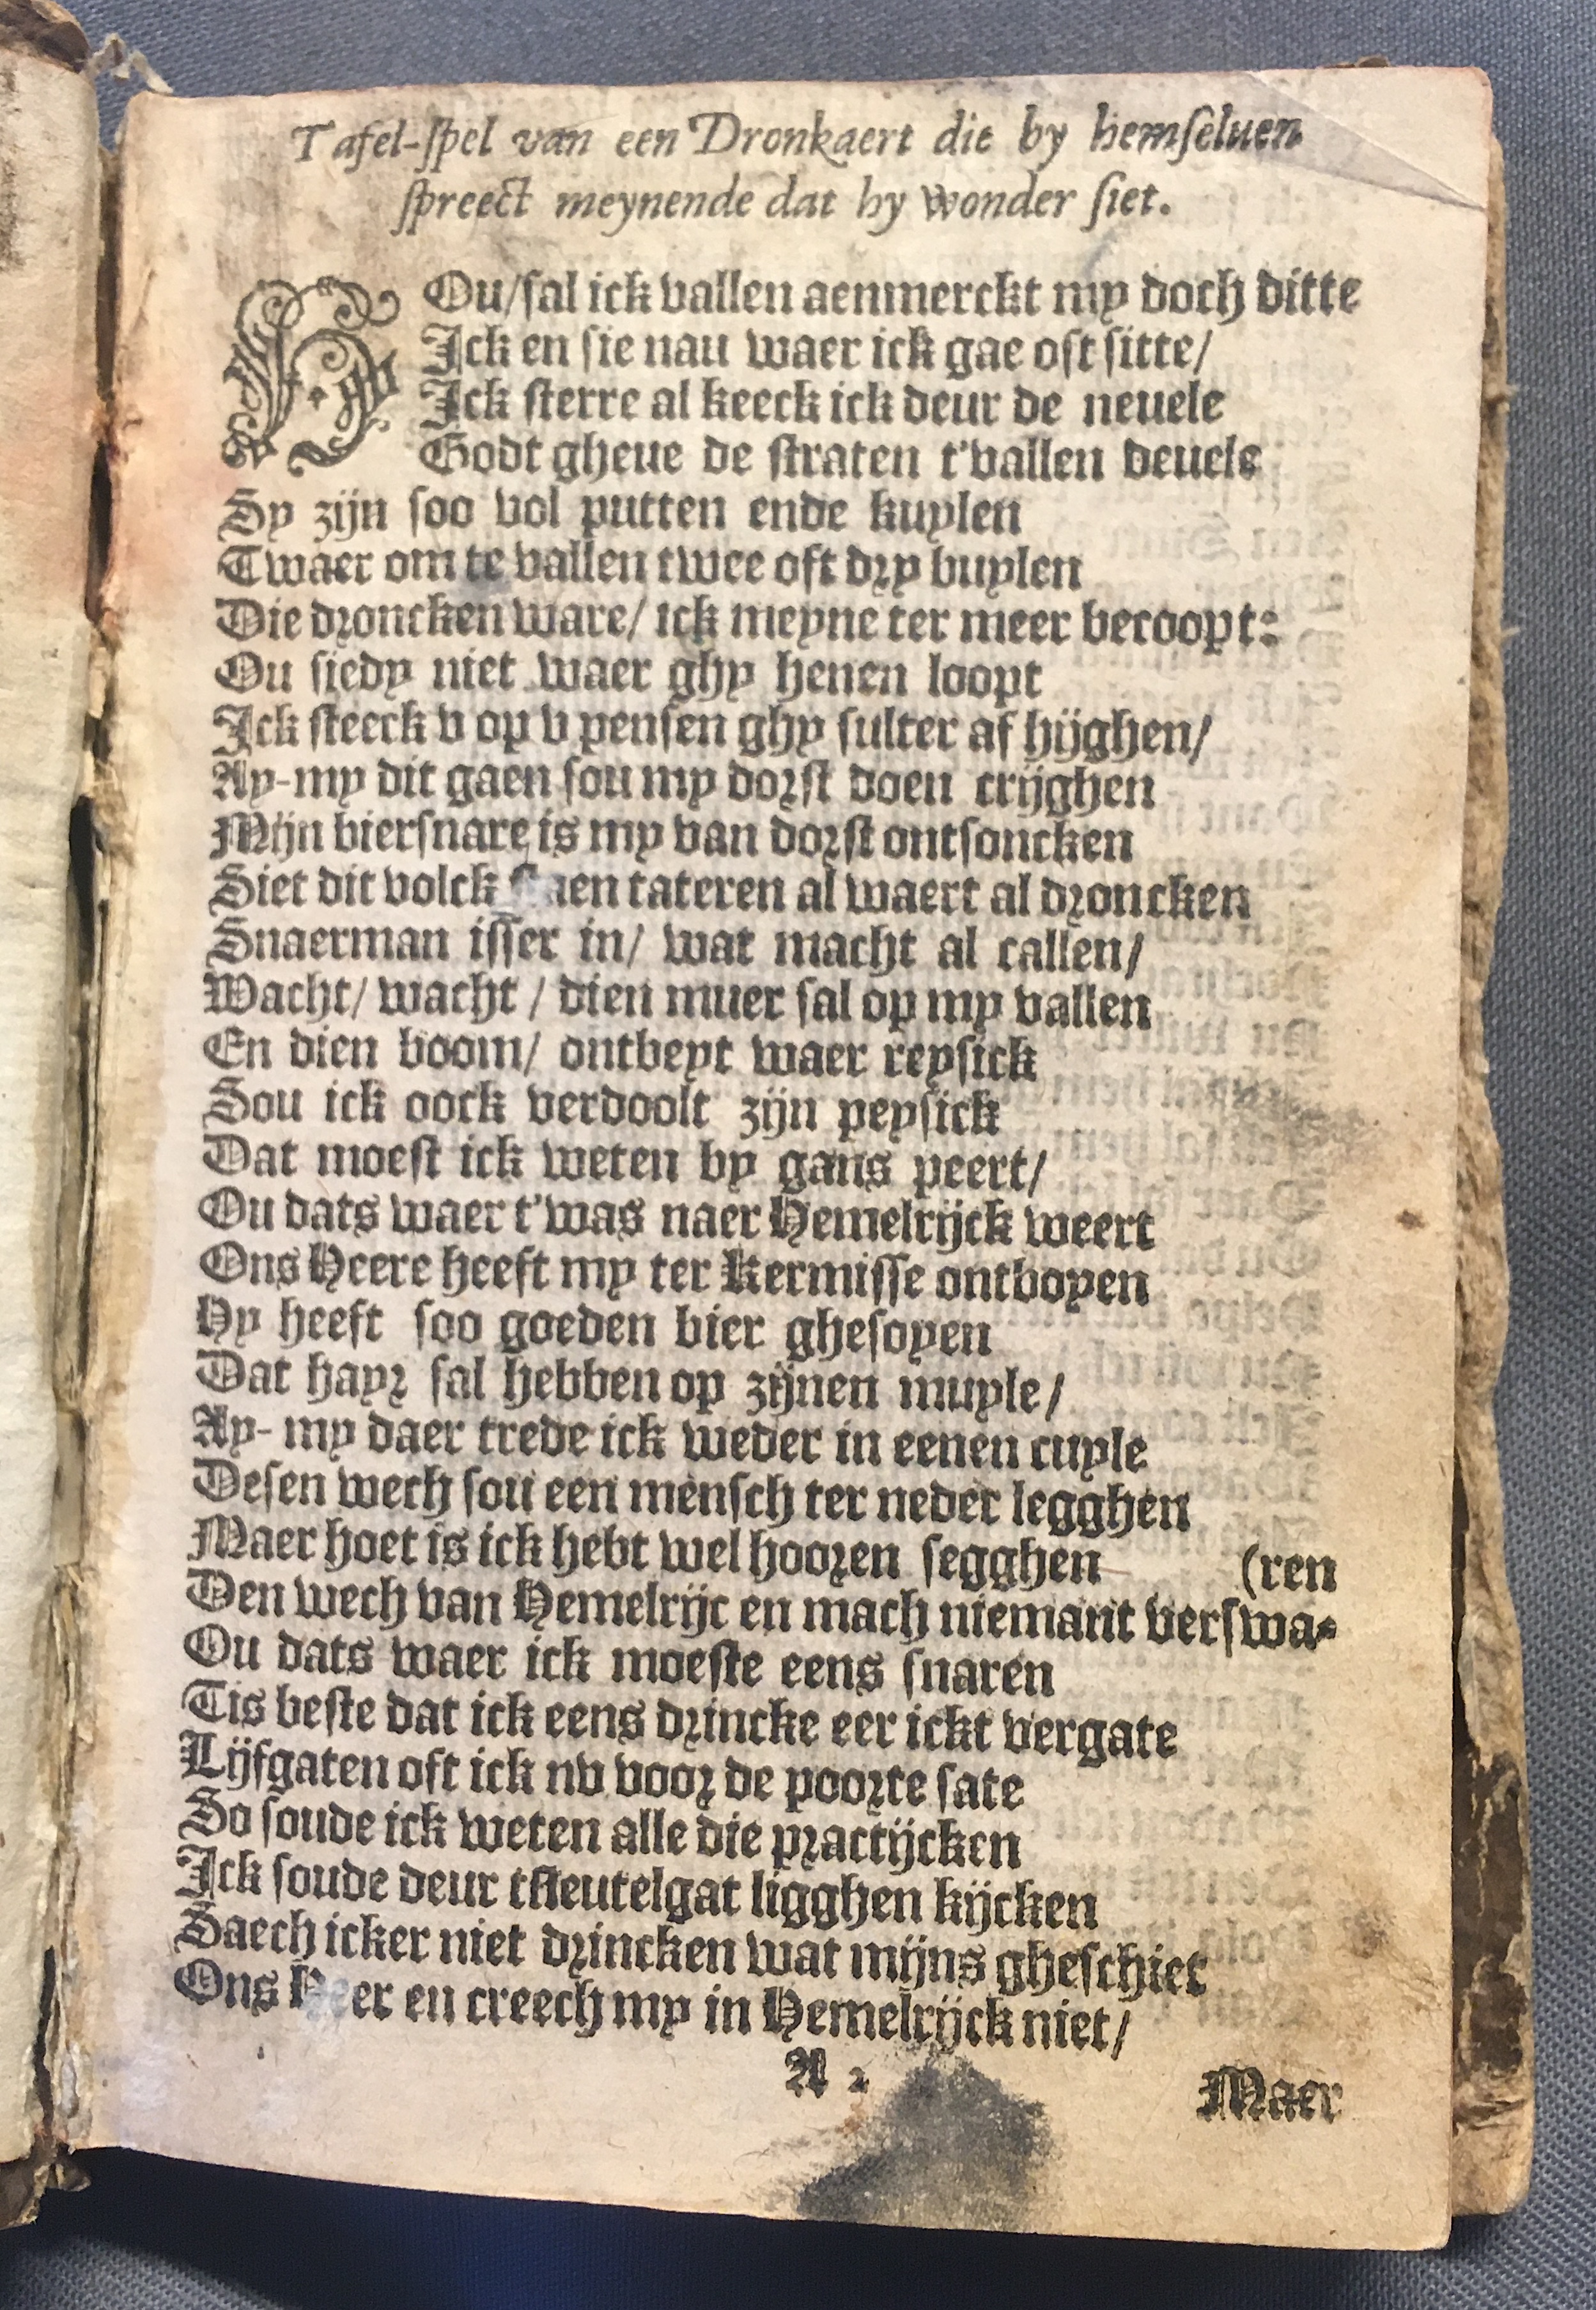 Tafel-spel van een Dronkaert die by hemseluen
spreeckt meynende dat hy wonder siet.
HOu/sal ick vallen aenmerckt my doch ditte
Ick en sie nau waer ick gae oft sitte/
Ick sterre al keeck ick deur de neuele
Godt gheue de straten t'vallen deuele
Sy zijn soo vol putten ende kuylen
Twaer om te vallen twee oft dry buylen
Die droncken ware/ ick meyne ter meer becoopt:
Ou siedy niet waer ghy henen loopt
Ick steeck v op v pensen ghy sulter af hijghen/
Ay-my dit gaen sou my dorst doen crijghen
Mijn biersnare is my van dorst ontsoncken
Siet dit volck tateren al waert al droncken
Snaerman isser in/ wat macht al callen/
Wacht/ wacht/ dien muer sal op my vallen
En dien boom/ ontbeyt waer reysick
Sou ick oock verdoolt zijn peysick
Dat moest ick weten by gans peert/
Ou dats waer t'was naer Hemelrijck weert
Ons Heere heeft my ter Kermisse ontboyen
Hy heeft soo goeden bier ghesoyen
Dat hayr sal hebben op zijnen muyle/
Ay-my daer trede ick weder in eenen cuyle
Desen wech sou een mensch ter neder legghen
Maer hoet is ick hebt wel hooren segghen (ren
Den wech van Hemelrijc en mach niemant verswa-
Ou dats waer ick moeste eens snaren
Tis beste dat ick eens drincke eer ickt vergate
Lijfgaten oft ick nv voor de poorte sate
So soude ick weten alle die practijcken
Ick soude deur tsleutelgat ligghen kijcken
Saech icker niet drincken wat mijns gheschiet
Ons en creech my in Hemelrijck niet/
A 2
Maer